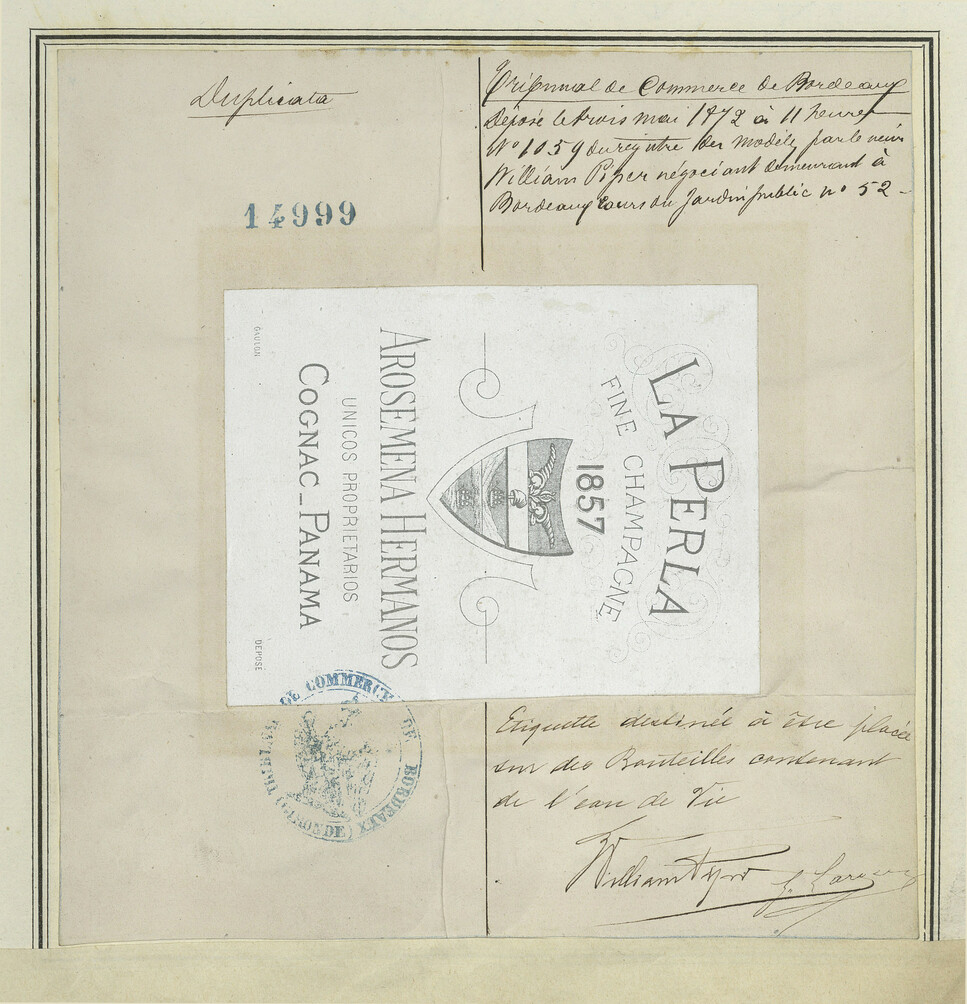 Duplicata
14999
Tribunal de Commerce de Bordeaux
Déposé le trois mai 1872 à 11 heures
N° 1059 du registre des modèles par le sieur
William Piper négociant demeurant à
Bordeaux Cours du Jardin public n° 52
LA PERLA
FINE CHAMPAGNE
1857
AROSEMENA HERMANOS
UNICOS PROPRIETARIOS
COGNAC_PANAMA
GAULON
DEPOSE
DE COMMERCE DE BORDEAUX (GIRONDE)
Etiquette destinée à être placée
sur des Bouteilles contenant
de l'eau de Vie
William